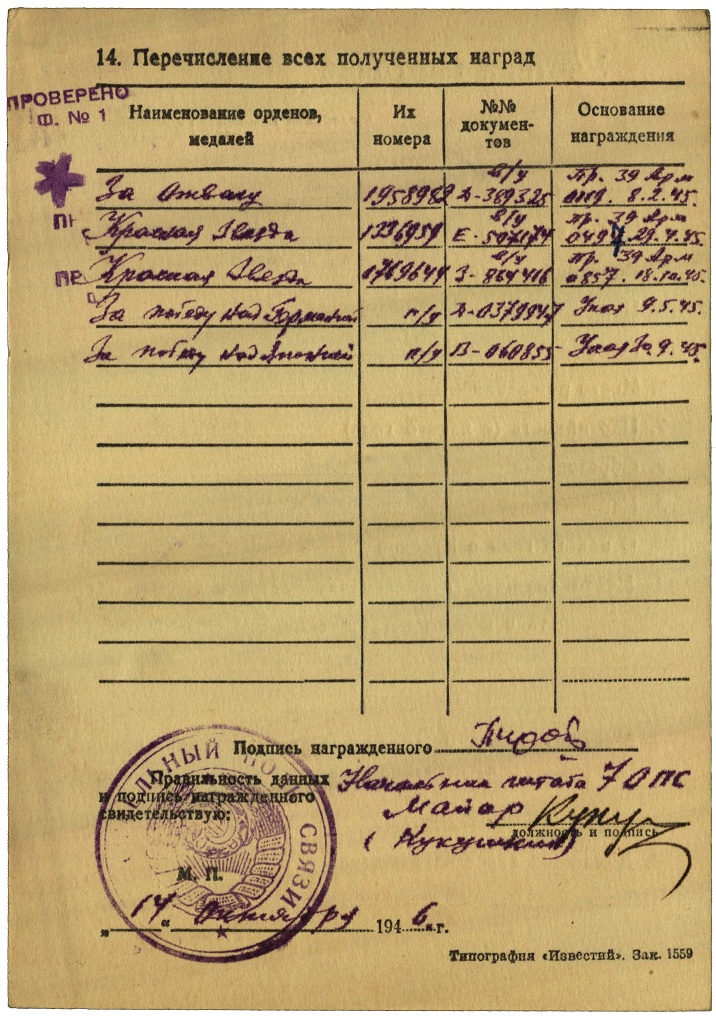 14. Перечисление всех полученных наград
ПРОВЕРЕНО
Ф. № 1
Наименование орденов, медалей
Их номера
№№ документов
Основание награждения
За Отвагу 1958982 в/у Д-389325 Пр. 39 Арм 0119. 8.2.45.
Красная Звезда 1236959 в/у Е-507174 Пр. 39 Арм 0497 29.4.45.
Красная Звезда 1769644 в/у З-864416 Пр. 39 Арм 0857. 18.10.45.
За победу над Германией н/у Д-0379947 Указ 9.5.45.
За победу над Японией н/у В-060855 Указ 30.9.45.
Подпись награжденного
Правильность данных
и подпись награжденного
свидетельствую:
Начальник штаба 7 ОПС
Майор
(Кукушкин)
должность и подпись
М. П.
ПОЛК СВЯЗИ
„14“ Октября 1946 г.
Типография «Известий». Зак. 1559